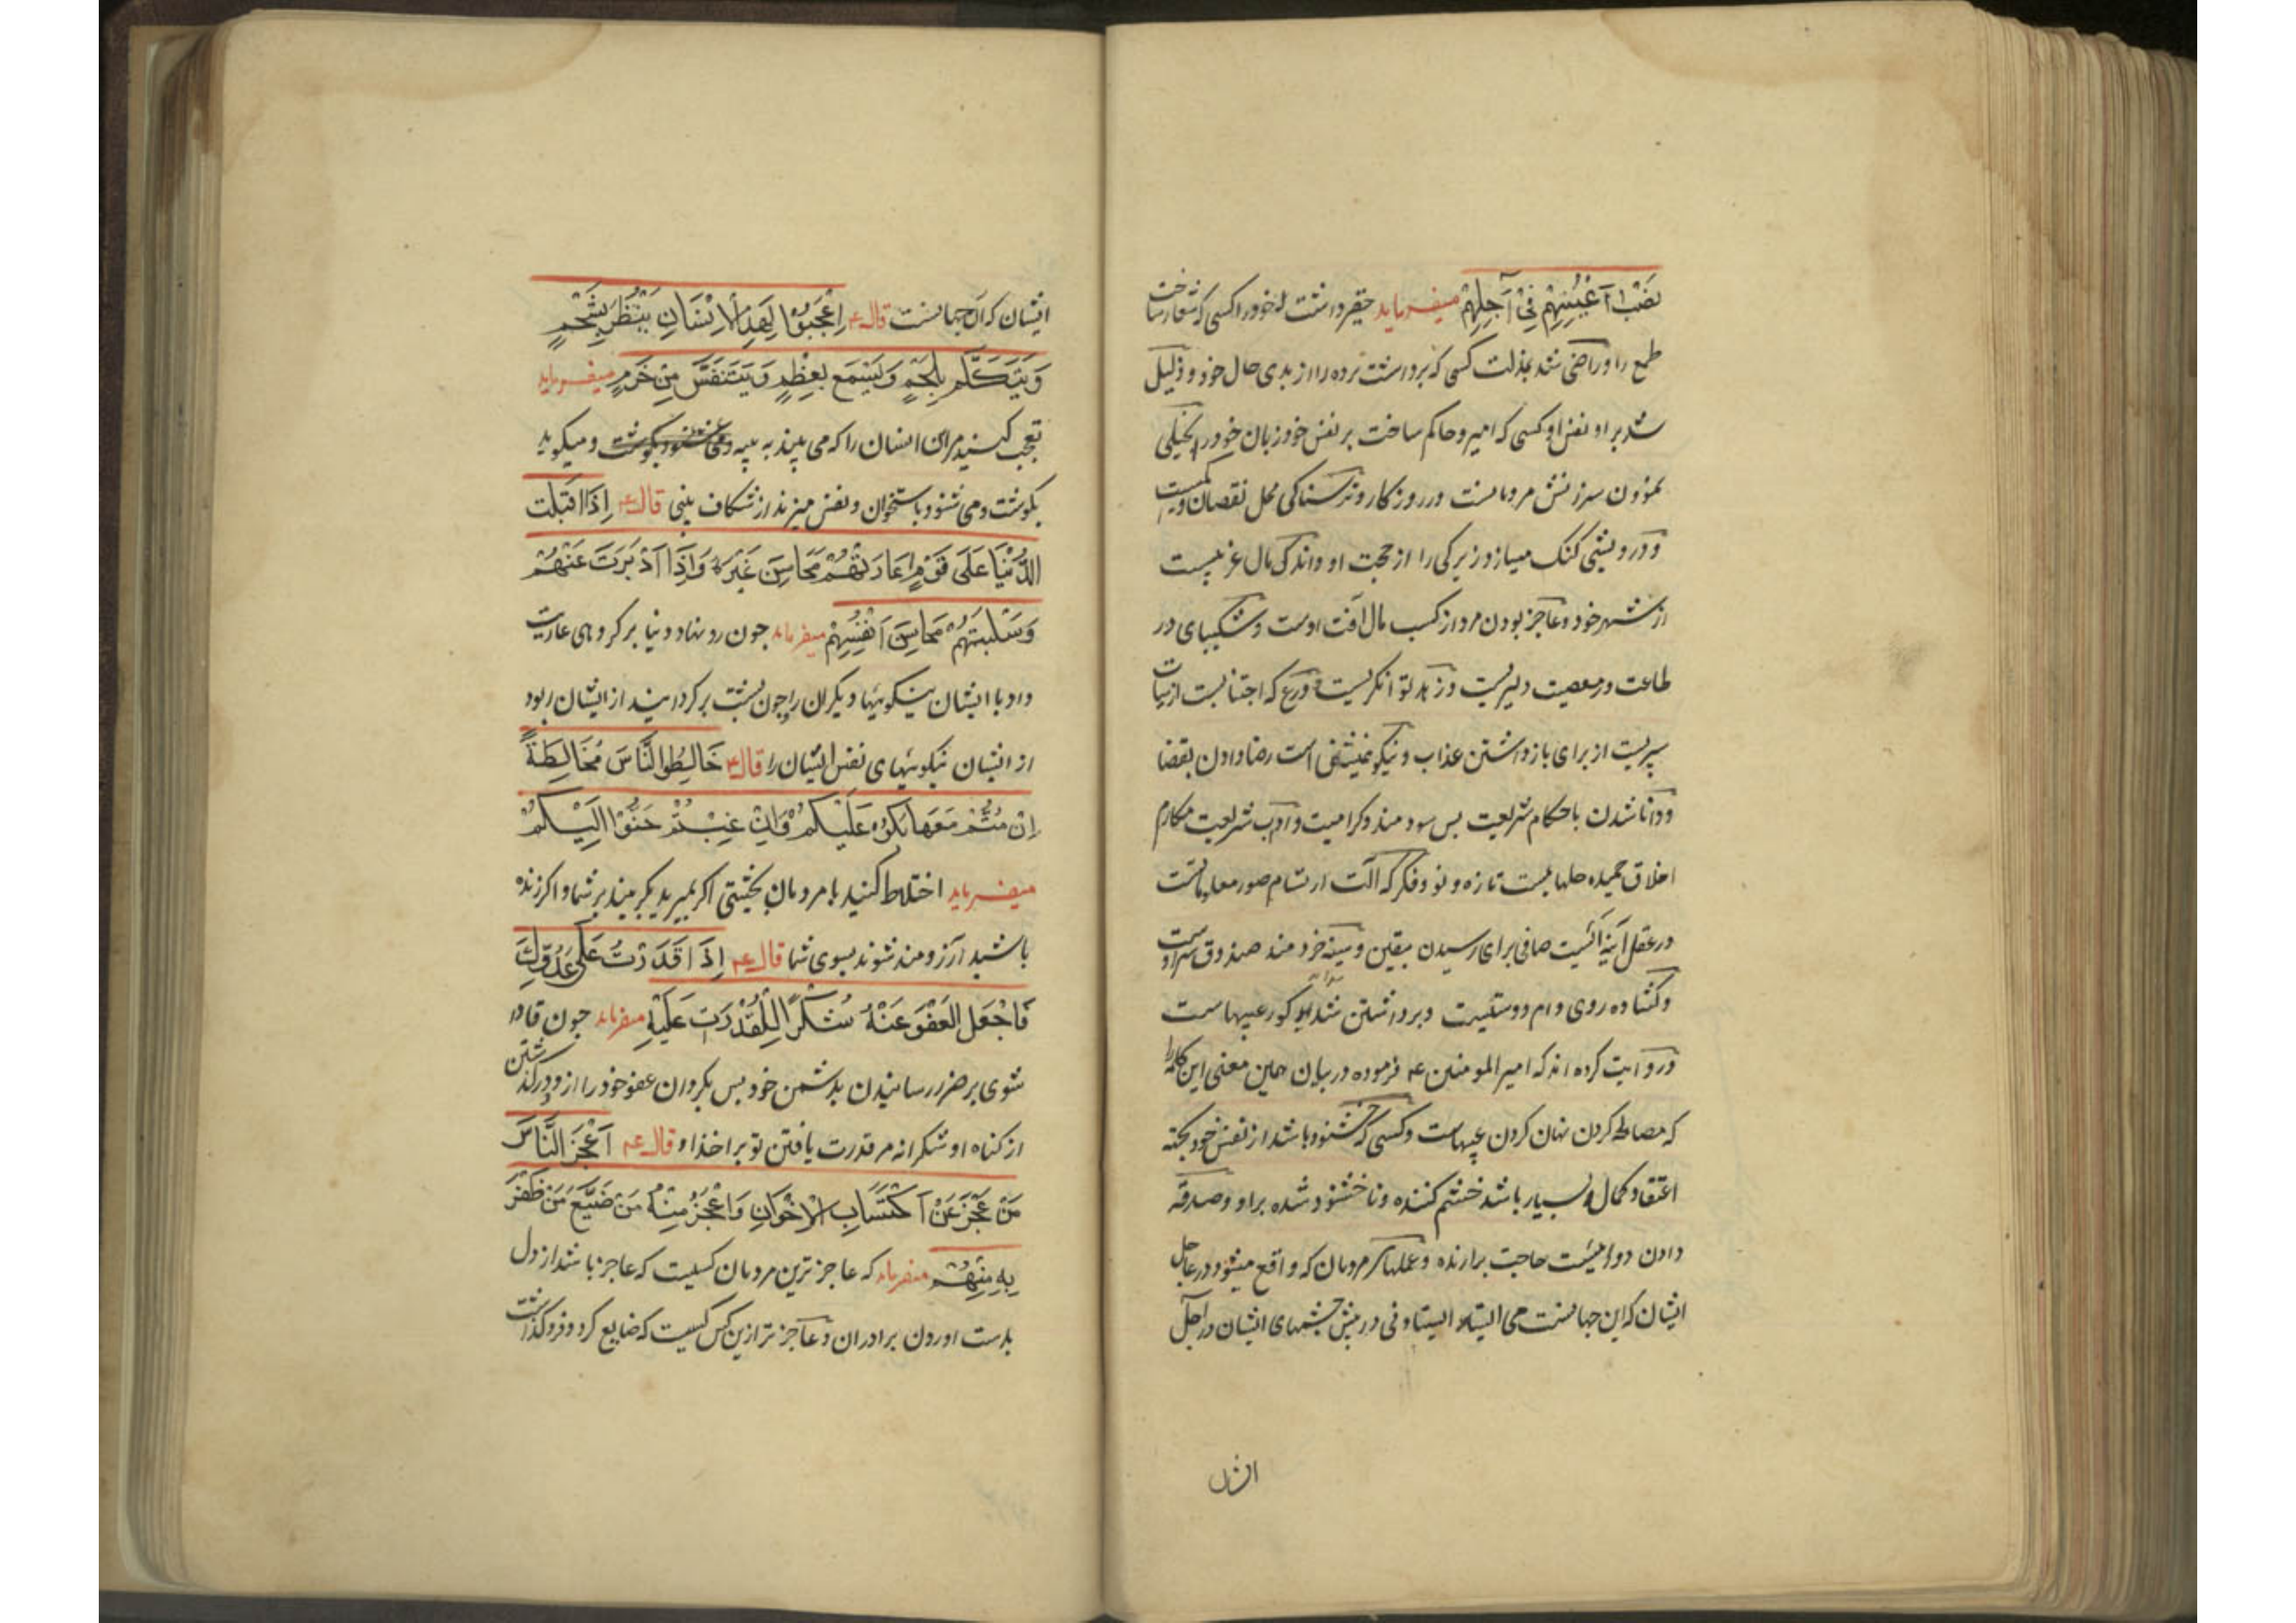 نَصْبُ اَعْيُنِهِمْ فِيْ آجِلِهِمْ میفرماید حقیر داشت خود را کسی که شعار ساخت
طمع را و راضی شد بمذلت کسی که برداشت پرده را از بدی حال خود و ذلیل
شد بر او نفس او کسی که امیر و حاکم ساخت بر نفس خود زبان خود را بخیلی
نمودن سرزنش مردمانست در روزکار و ترسناکی محل نقصان
و درویشی کنک میسازد زیرکی را از حجت او و اندک مال غریبست
از شهر خود و عاجز بودن مرد از کسب مال آفت اوست و شکیبای در
طاعت و معصیت دلیریست و زهد توانکریست و ورع که اجتنابست از سیئات
سپریست از برای بازداشتن عذاب و نیکو همنشینی است رضا دادن بقضا
و دانا شدن باحکام شریعت بس سودمند و کرامیست و آداب شریعت مکارم
اخلاق حمیده حلهاییست تازه و نو و فکر که آلت ارتسام صور معلوماتست
در عقل آینه‌ایست صافی برای رسیدن بیقین و سینه خردمند صندوق سر اوست
و کشاده روی دام دوستیست و برداشتن شداید کور عیبهاست
و روایت کرده اند که امیر المومنین ع فرموده در بیان همین معنی این کلمه را
که مصالحه کردن نهان کردن عیبهاست و کسی که خشنود باشد از نفس خود بجهته
اعتقاد کمال بسیار باشد خشم کننده و ناخشنود شده بر او و صدقه
دادن دوائیست حاجت برارنده و عملهای مردمان که واقع میشود در عاجل
ایشان که این جهانست می ایستد ایستادنی در پیش چشمهای ایشان در اجل
ایشان
ایشان که آن جهانست قال ع اِعْجَبُوْا لِهٰذَا الْاِنْسَانِ يَنْظُرُ بِشَحْمٍ
وَيَتَكَلَّمُ بِلَحْمٍ وَيَسْمَعُ بِعَظْمٍ وَيَتَنَفَّسُ مِنْ خَرَمٍ میفرماید
تعجب کنید مر این انسان را که می بیند به پیه و می شنود بکوشت و میکوید
بکوشت و می شنود باستخوان و نفس میزند از شکاف بینی قال ع اِذَا اَقْبَلَت
الدُّنْيَا عَلَى قَوْمٍ اَعَارَتْهُمْ مَحَاسِنَ غَيْرِهِ وَاِذَا اَدْبَرَتْ عَنْهُمْ
وَسَلَبَتْهُمْ مَحَاسِنَ اَنْفُسِهِمْ میفرماید جون رو نهاد دنیا بر کروهی عاریت
داد با ایشان نیکوییها دیکران را چون پشت بر کردانید از ایشان ربود
از ایشان نیکوییهای نفس ایشان را قال ع خَالِطُوا النَّاسَ مُخَالَطَةً
اِنْ مُتُّمْ مَعَهَا بَكَوْا عَلَيْكُمْ وَاِنْ غِبْتُمْ حَنُّوْا اِلَيْكُمْ
میفرماید اختلاط کنید با مردمان بحیثیتی اکر بمیرید بکریند بر شما و اکر زنده
باشید آرزومند شوند بسوی شما قال ع اِذَا قَدَرْتَ عَلَى عَدُوِّكَ
فَاجْعَلِ الْعَفْوَ عَنْهُ شُكْرًا لِلْقُدْرَتِ عَلَيْهِ میفرماید جون قادر
شوی بر ضرر رسانیدن بدشمن خود بس بکردان عفو خود را از و درکذشتن
از کناه او شکرانه مر قدرت یافتن تو بر اخذ او قال ع اَعْجَزُ النَّاسِ
مَنْ عَجَزَ عَنْ اكْتِسَابِ الْاِخْوَانِ وَاَعْجَزُ مِنْهُ مَنْ ضَيَّعَ مَنْ ظَفِرَ
بِهِ مِنْهُمْ میفرماید که عاجز ترین مردمان کسیست که عاجز باشد از دل
بدست اوردن برادران و عاجز تر ازین کس کسیست که ضایع کرد و فروکذاشت